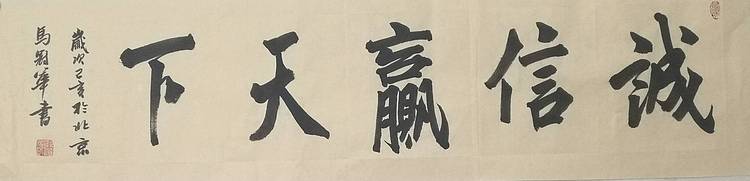 誠信贏天下
歲次己亥於北京
馬 華書